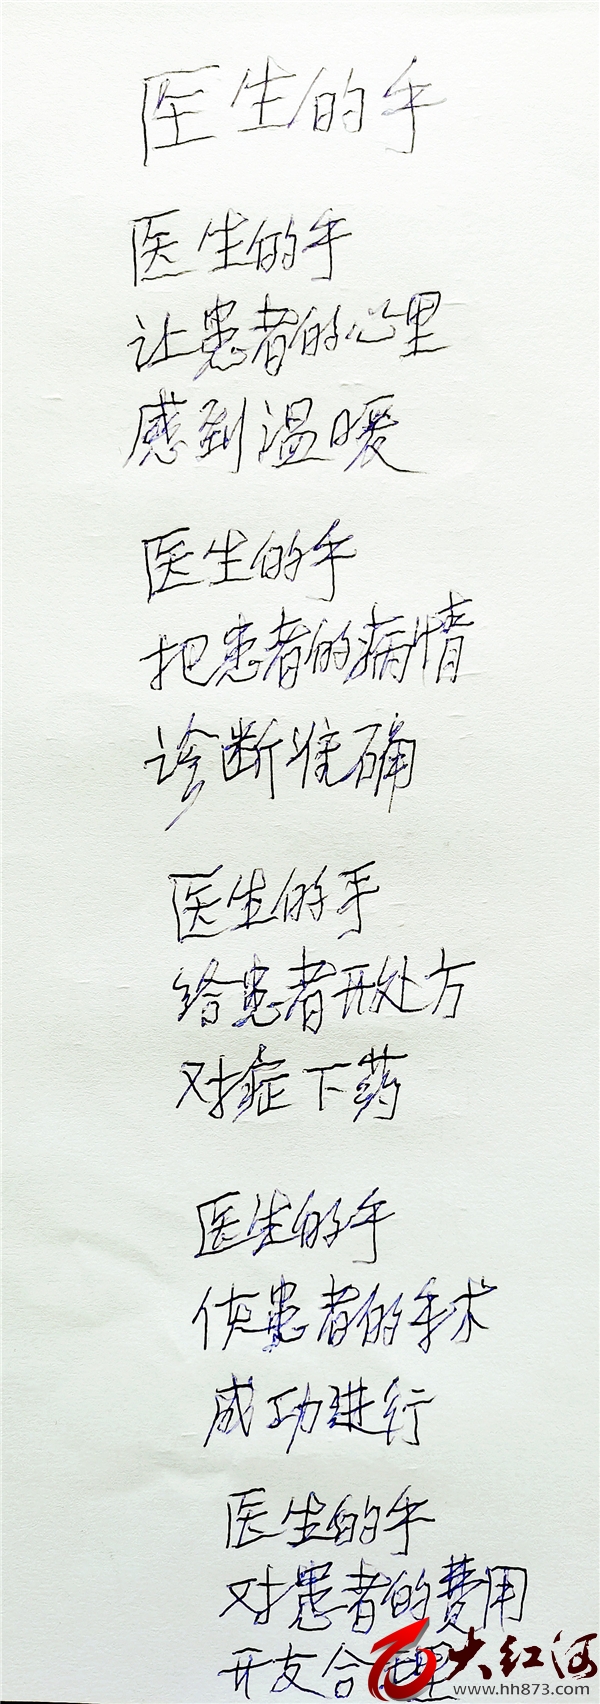 医生的手
医生的手
让患者的心里
感到温暖
医生的手
把患者的病情
诊断准确
医生的手
给患者开处方
对症下药
医生的手
使患者的手术
成功进行
医生的手
对患者的费用
开支合理
大红河
www.hh873.com